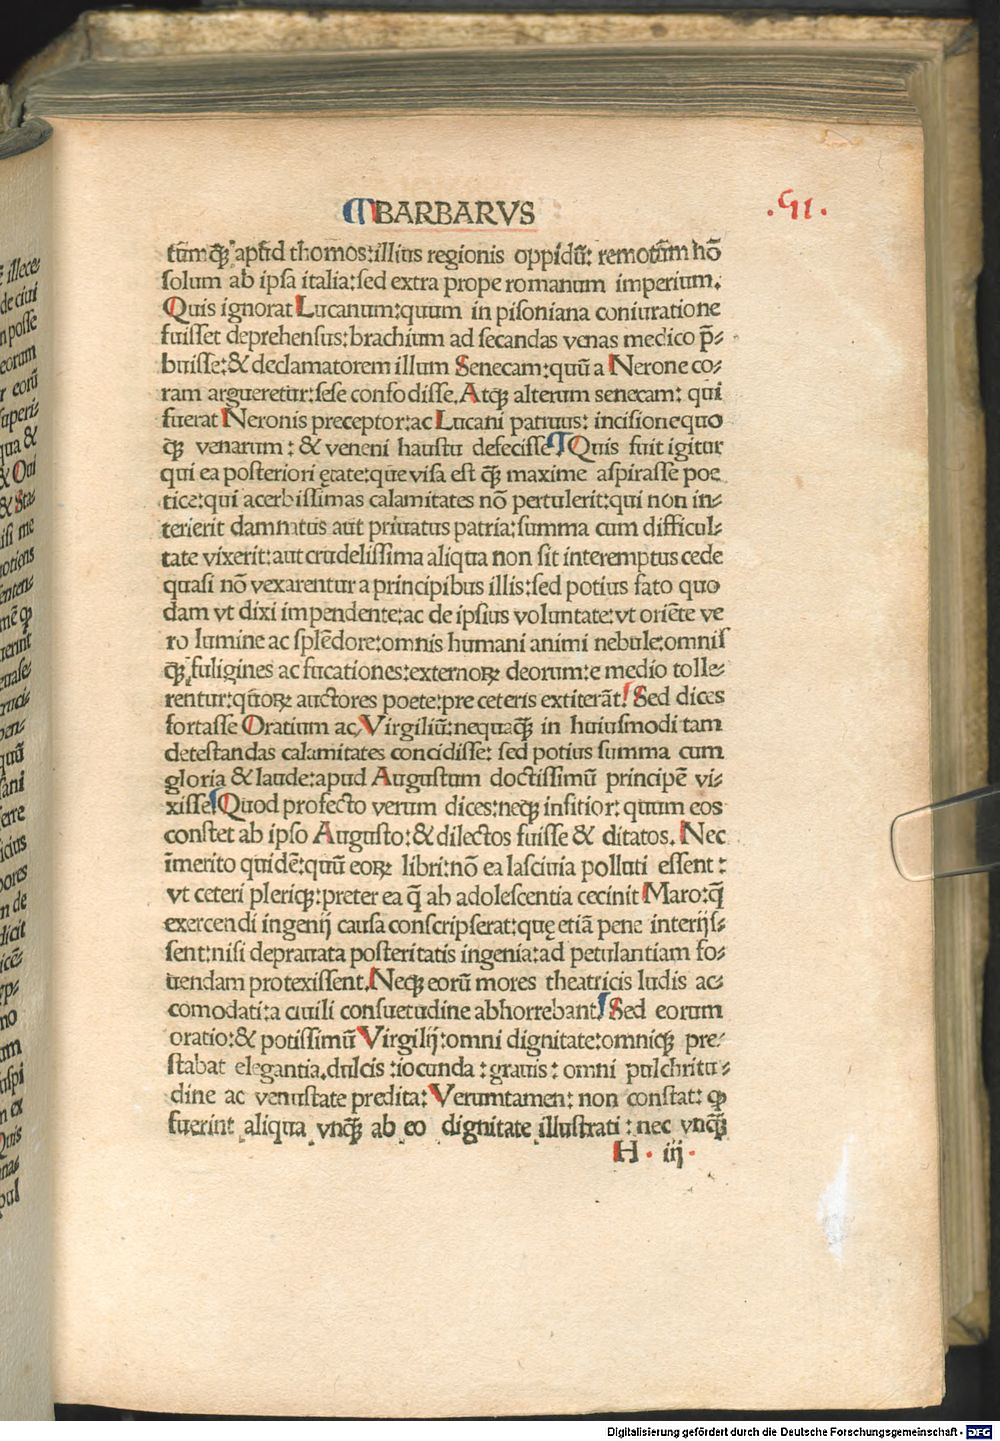 BARBARVS
.GII.
tũmꝗ̃ apud thomos:illius regionis oppidũ: remotũm nõ
solum ab ipsa italia:sed extra prope romanum imperium.
Quis ignorat Lucanum:quum in pisoniana coniuratione
fuisset deprehensus:brachium ad secandas venas medico p̃-
buisse:& declamatorem illum Senecam:quũ a Nerone co-
ram argueretur:sese confodisse. Atqꝫ alterum senecam: qui
fuerat Neronis preceptor:ac Lucani patruus: incisione quo
qꝫ venarum: & veneni haustu defecisse ¶ Quis fuit igitur
qui ea posteriori ętate:que visa est ꝗ̃ maxime aspirasse poe
tice:qui acerbissimas calamitates nõ pertulerit:qui non in-
terierit damnatus aut priuatus patria:summa cum difficul-
tate vixerit:aut crudelissima aliqua non sit interemptus cede
quasi nõ vexarentur a principibus illis:sed potius fato quo
dam vt dixi impendente:ac de ipsius voluntate:vt oriẽte ve
ro lumine ac splẽdore:omnis humani animi nebule:omnis
qꝫ fuligines ac fucationes:externoꝝ deorum:e medio tolle-
rentur:quoꝝ auctores poete:pre ceteris extiterãt. Sed dices
fortasse Oratium ac Virgiliũ:nequaꝗ̃ in huiusmodi tam
detestandas calamitates concidisse: sed potius summa cum
gloria & laude:apud Augustum doctissimũ principẽ vi-
xisse ¶ Quod profecto verum dices:neqꝫ insitior: quum eos
constet ab ipso Augusto:& dilectos fuisse & ditatos. Nec
ĩmerito quidẽ:quũ eoꝝ libri:nõ ea lasciuia polluti essent:
vt ceteri pleriqꝫ:preter ea q̃ ab adolescentia cecinit Maro:q̃
exercendi ingenij causa conscripserat:quę etiã pene interijs-
sent:nisi deprauata posteritatis ingenia:ad petulantiam fo-
uendam protexissent. Neqꝫ eorũ mores theatricis ludis ac-
comodati:a ciuili consuetudine abhorrebant ¶ Sed eorum
oratio:& potissimũ Virgilij:omni dignitate:omniqꝫ pre-
stabat elegantia.dulcis:iocunda:grauis: omni pulchritu-
dine ac venustate predita: Verumtamen: non constat: ꝙ
fuerint aliqua vnꝗ̃ ab eo dignitate illustrati: nec vnꝗ̃
H. iij.
Digitalisierung gefördert durch die Deutsche Forschungsgemeinschaft - DFG